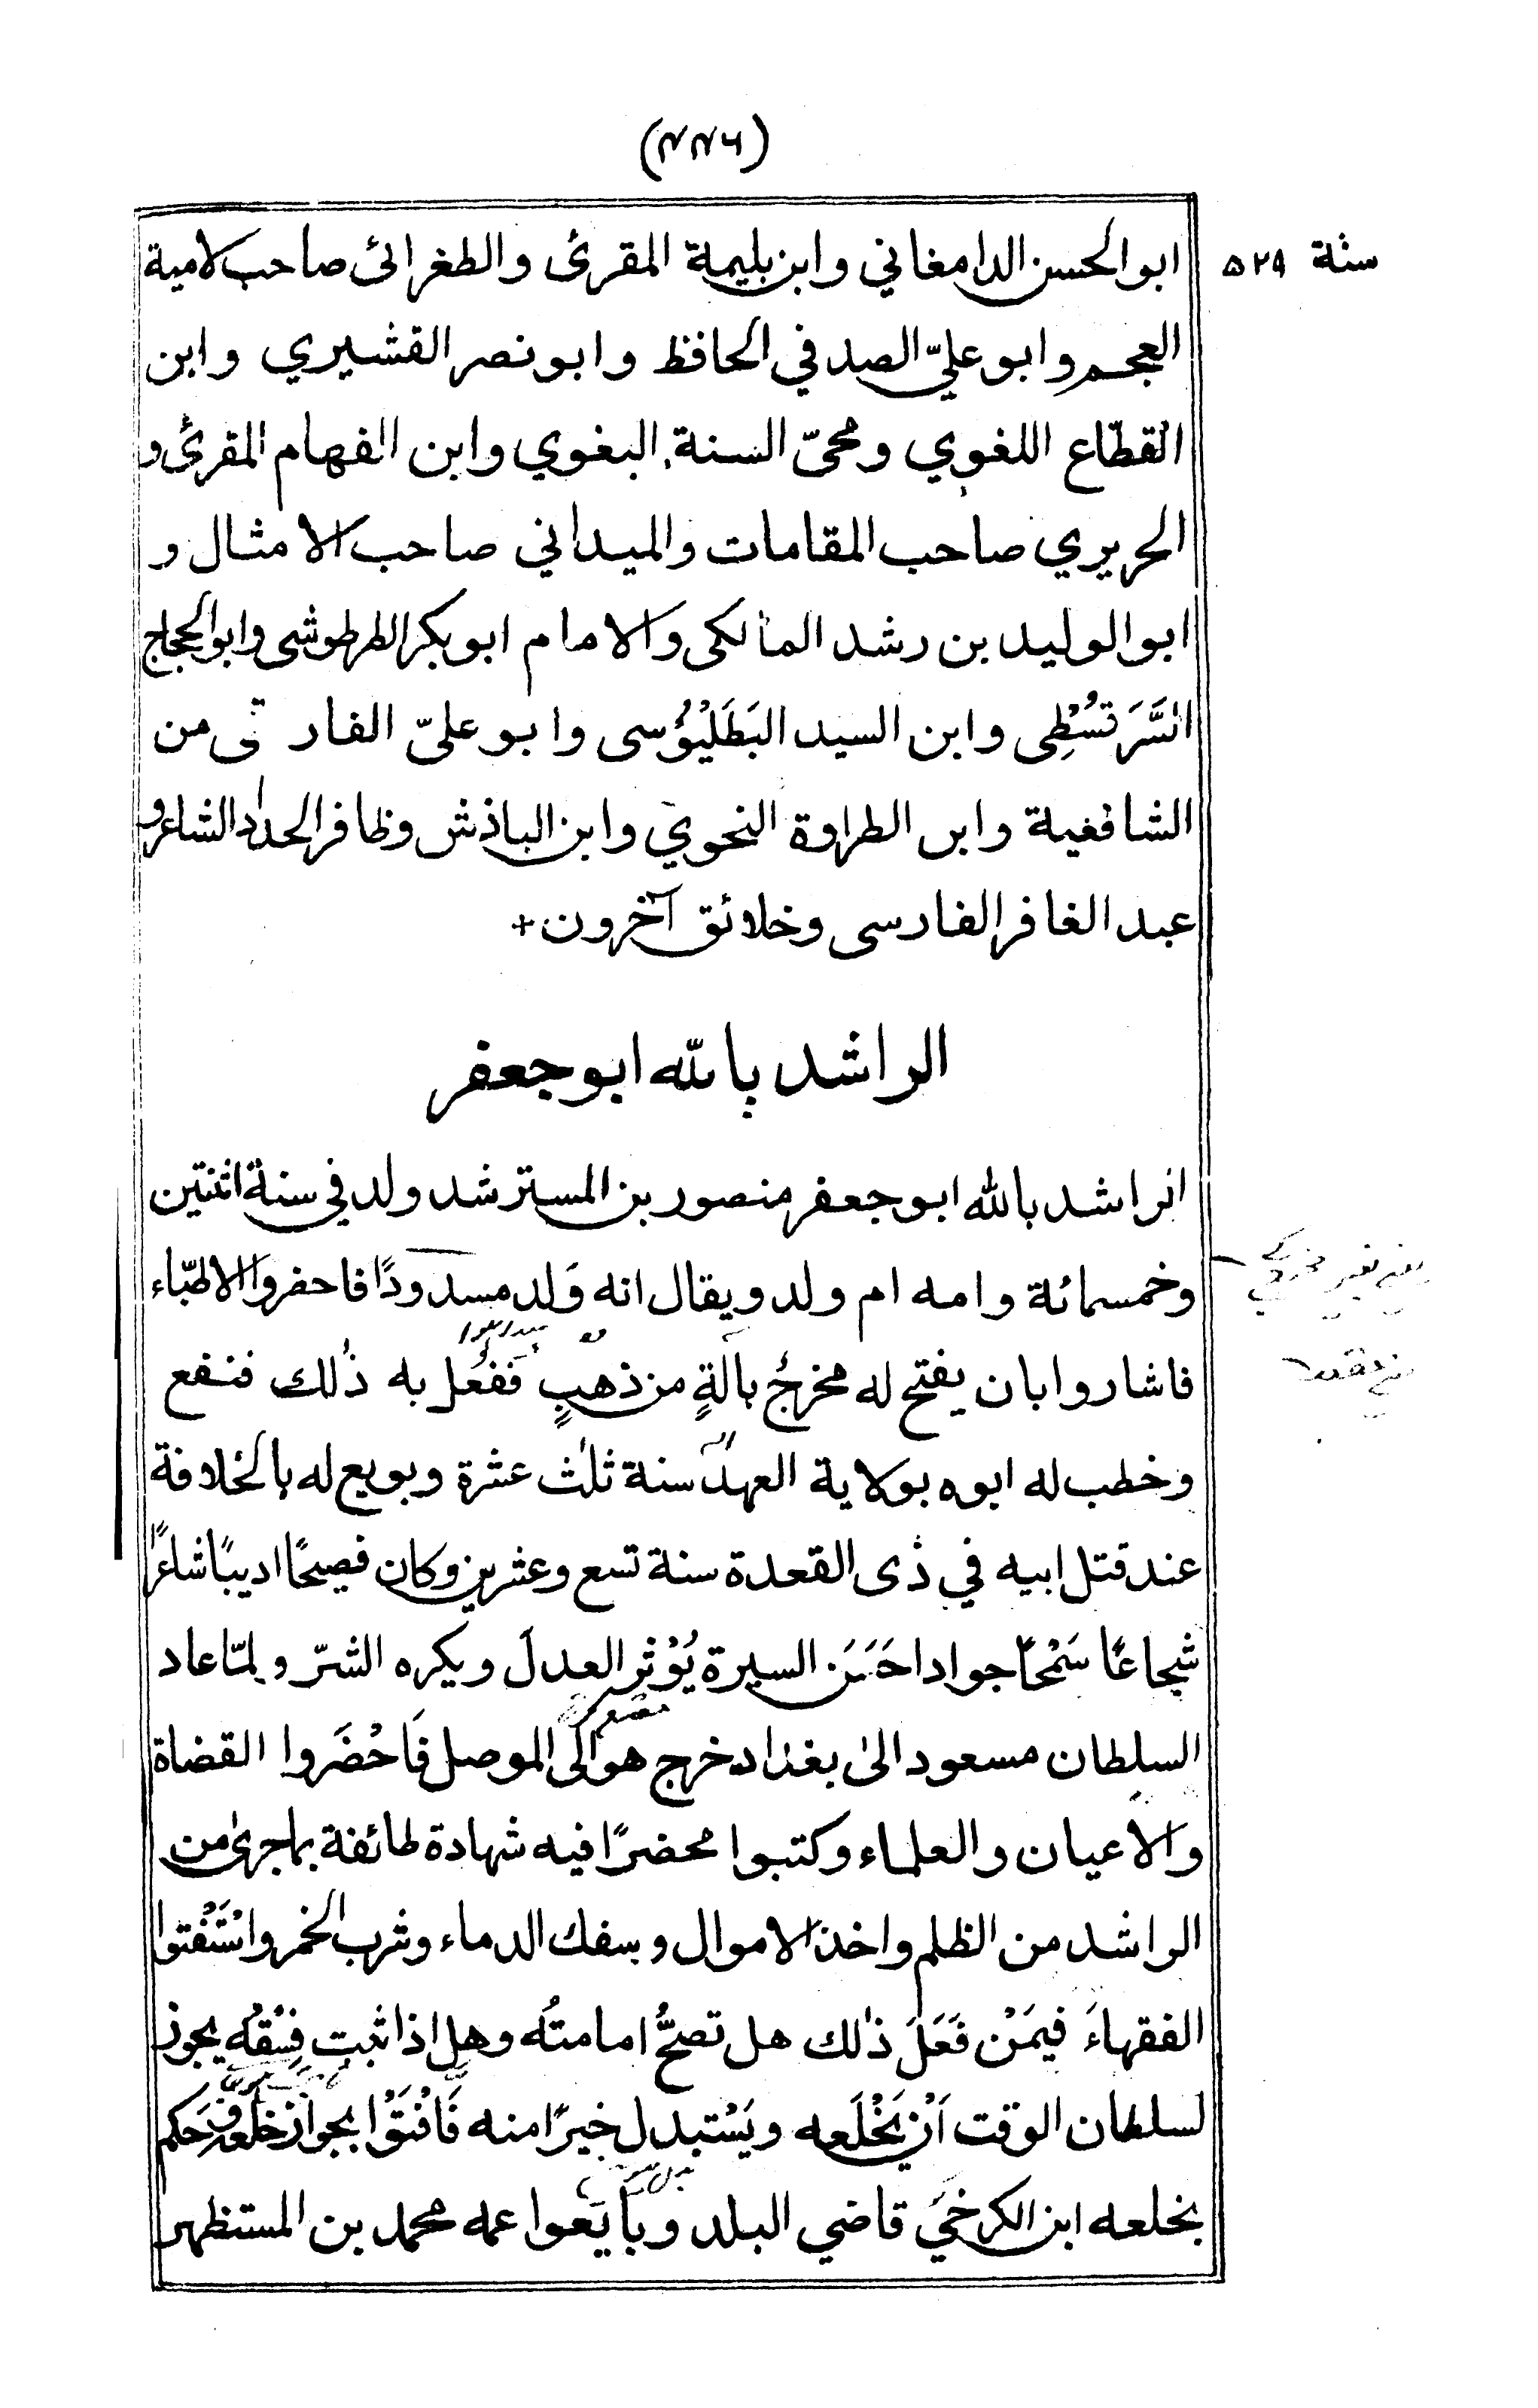 (٤٤٦)
سنة ٥٢٩
ابو الحسن الدامغاني وابن بليمة المقرئ والطغرائ صاحب لامية
العجم وابو عليّ الصدفي الحافظ وابو نصر القشيري وابن
القطّاع اللغوي ومحيّ السنة البغوي وابن الفهام المقرئ و
الحريري صاحب المقامات والميداني صاحب الامثال و
ابو الوليد بن رشد المالكى والامام ابو بكر الطرطوشى وابو الحجاج
السَّرَقسُطِى وابن السيد البَطَلْيُؤسى وابو عليّ الفارقى من
الشافغية وابن الطراوة النحوي وابن الباذش وظافر الحداد الشاعر و
عبد الغافر الفارسى وخلائق آخرون +
الراشد بالله ابو جعفر
الراشد بالله ابو جعفر منصور بن المسترشد ولد في سنة اثنتين
وخمسمائة وامه ام ولد ويقال انه وَلد مسدودًا فاحفروا الاطبّاء
فاشاروا بان يفتح له مخرجُ بالةٍ من ذهبٍ فَفُعل به ذٰلك فنفع
وخطب له ابوه بولاية العهد سنة ثلٰث عشرة وبويع له بالخلافة
عند قتل ابيه في ذى القعدة سنة تسع وعشرين وكان فصيحًا اديبًا شاعرًا
شجاعًا سَمْحًا جوادا حَسَنَ السيرة يُؤثر العدلَ ويكره الشرّ ولمّا عاد
السلطان مسعود الىٰ بغداد خرج هو الى الموصل فَاحْضَروا القضاة
والاعيان والعلماء وكتبوا محضرًا فيه شهادة طائفة بما جرىٰ من
الراشد من الظلم واخذ الاموال وسفك الدماء وشرب الخمر واسْتَفْتوا
الفقهاءَ فيمَنْ فَعَلَ ذٰلك هل تصحُّ امامتُه وهل اذا ثبت فِسْقُه يجوز
لسلطان الوقت اَنْ يَخْلَعه ويَسْتبدل خيرًا منه فَافْتَوْا بجواز خلعه وحَكم
بخلعه ابن الكرخيّ قاضي البلد وبايَعوا عمه محمد بن المستظهر